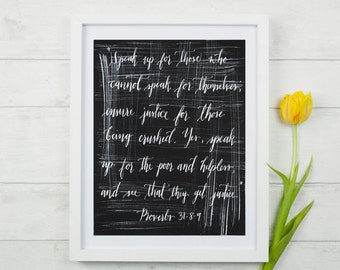 Speak up for those who
cannot speak for themselves,
insure justice for those
being crushed. Yes, speak
up for the poor and helpless,
and see that they get justice.
Proverbs 31:8-9